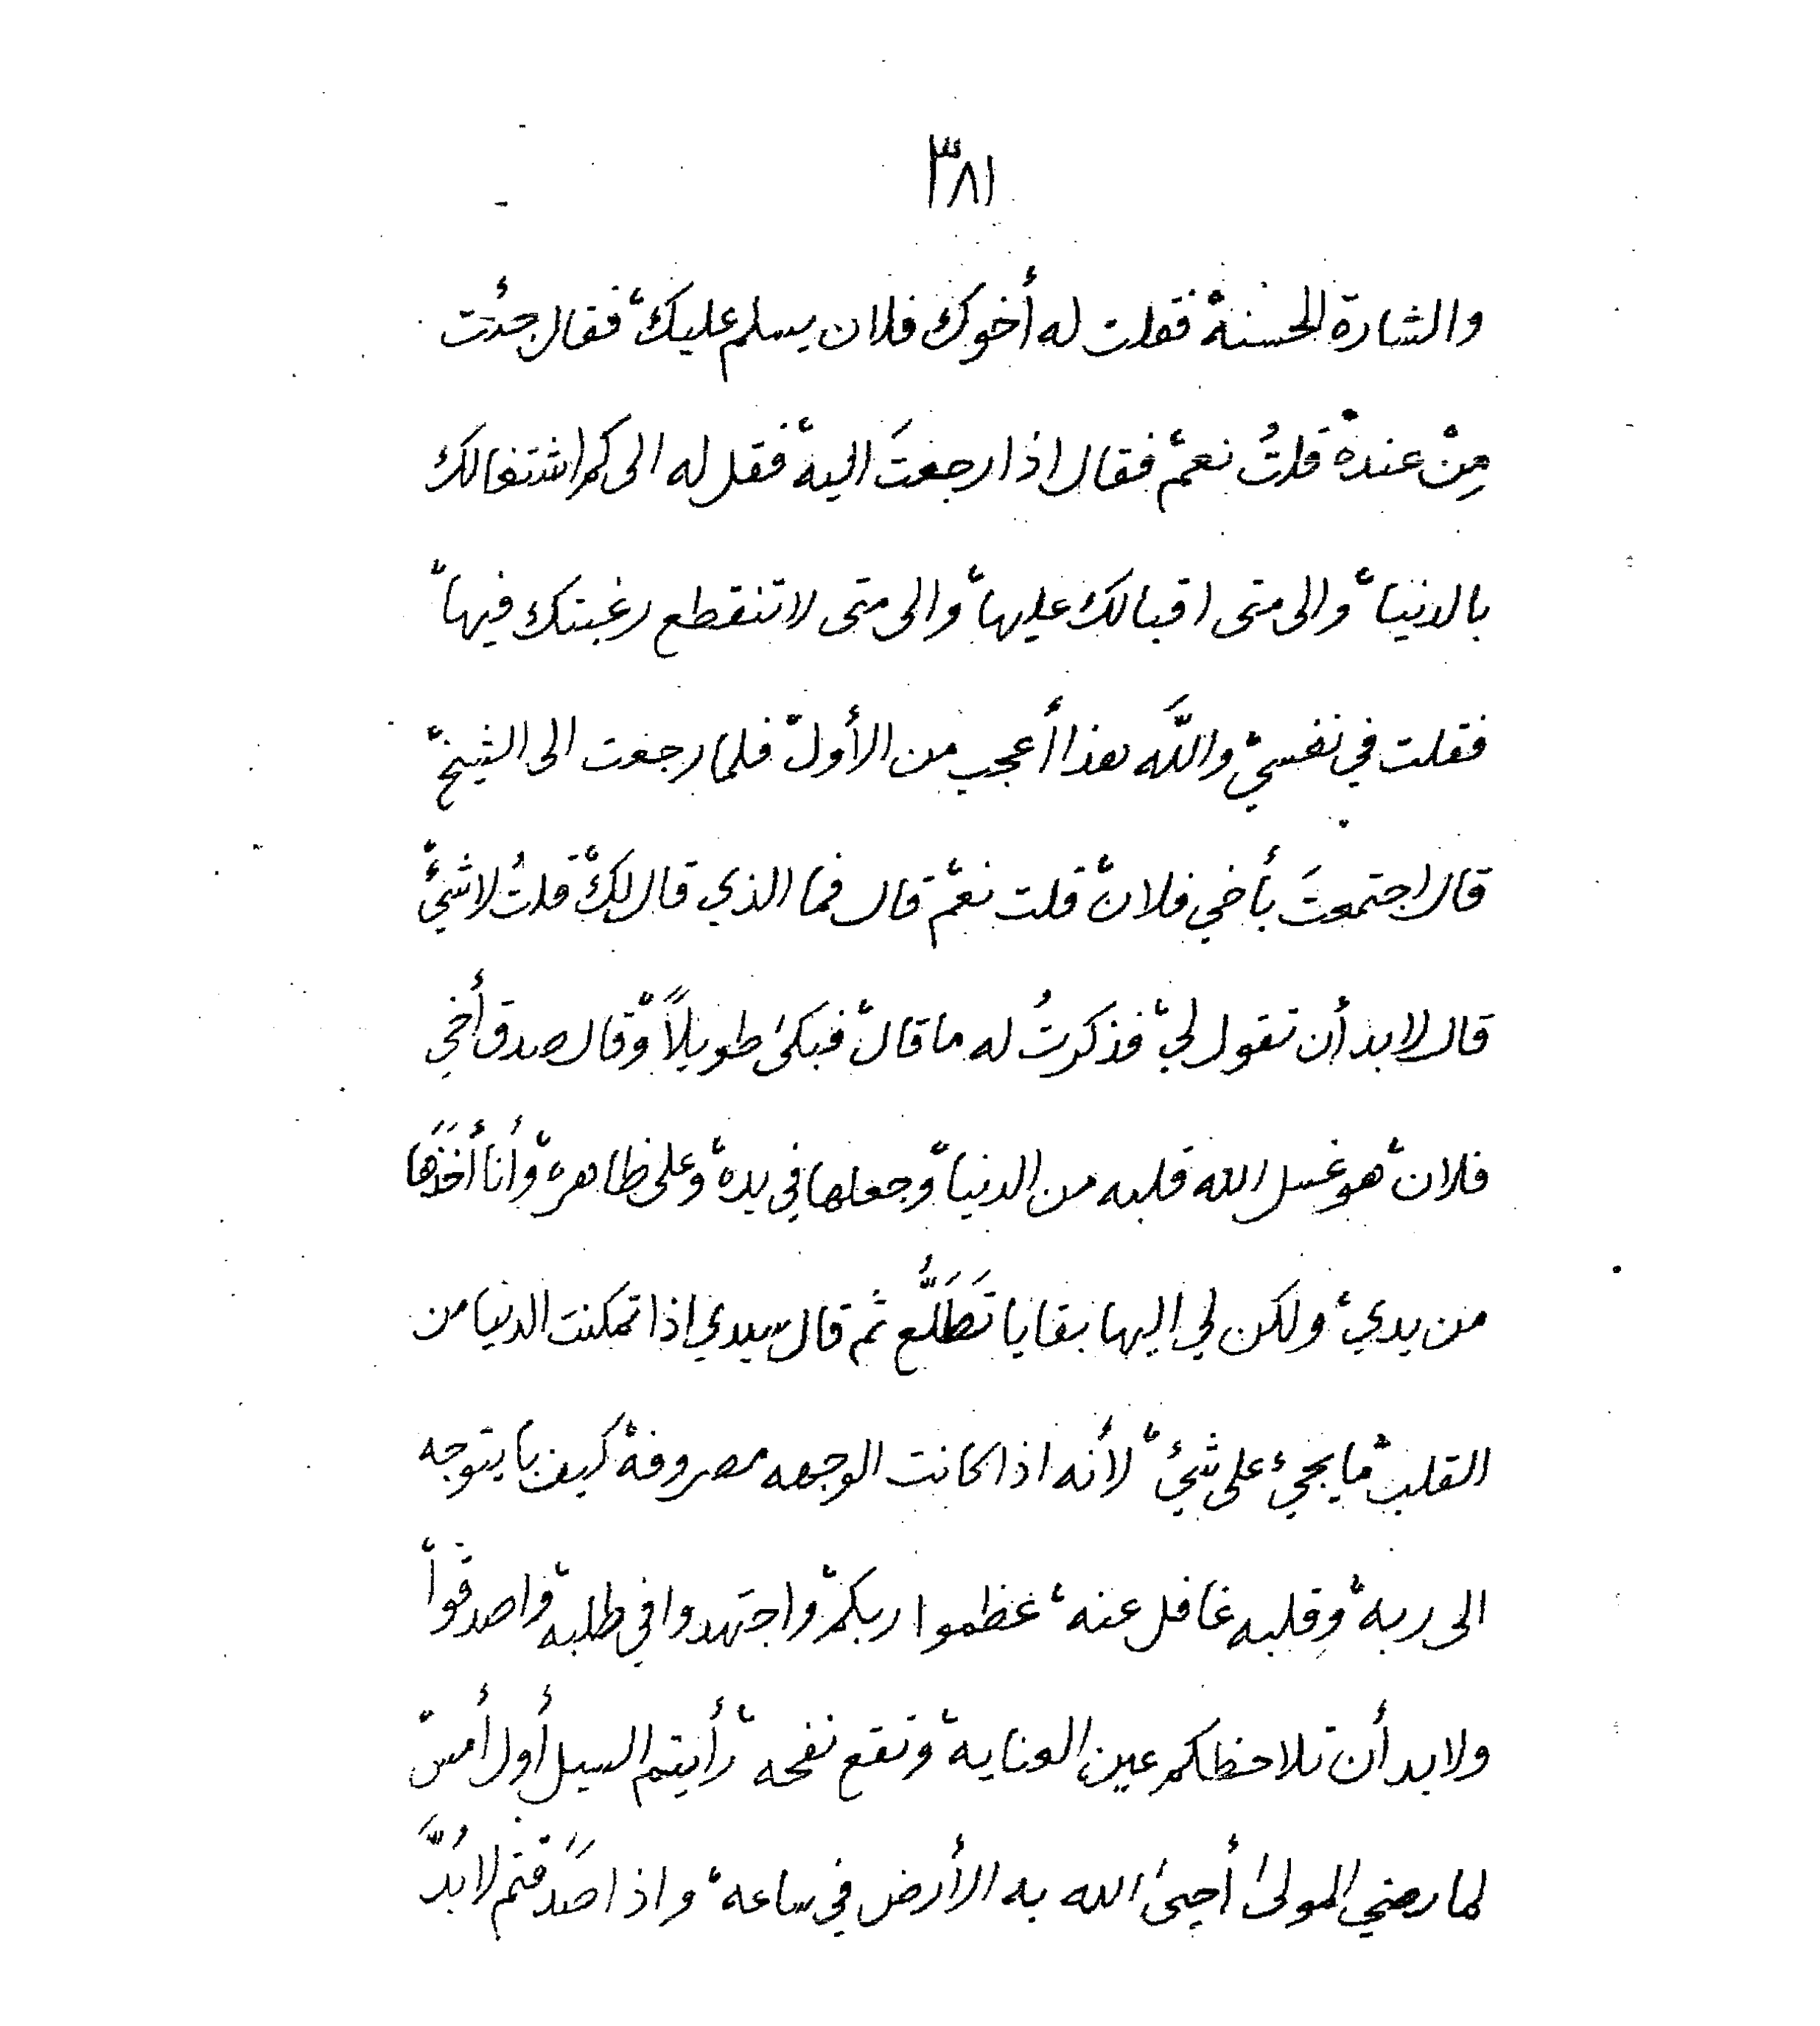 ٣٨١
والشارة الحسنة، فقلت له أخوك فلان يسلم عليك، فقال جئت
مِنْ عنده، قلتُ نعم، فقال اذا رجعتَ اليه، فقل له الى كم اشتغالك
بالدنيا، والى متى اقبالك عليها، والى متى لا تنقطع رغبتك فيها،
فقلت في نفسي، واللَّه هذا أعجب من الأول، فلما رجعت الى الشيخ،
قال اجتمعتَ بأخي فلان، قلت نعم، قال فما الذي قال لك، قلتُ لا شئ،
قال لا بد أن تقول لي، فذكرتُ له ما قال، فبكىٰ طويلاً، وقال صدق أخي
فلان، هو غسل الله قلبه من الدنيا، وجعلها في يده، وعلى ظاهره، وأنا أخذَها
من يدي، ولكن لي اليها بقايا تَطَلُّع ثم قال سيدي اذا تمكنت الدنيا من
القلب، ما يجيء على شئ، لأنه اذا كانت الوجهه مصروفة، كيف با يتوجه
الى ربه، وقلبه غافل عنه، عظموا ربكم، واجتهدوا في طلبه، واصدقوا،
ولا بد أن تلاحظكم عين العناية، وتقع نفحه، رأيتم السيل أول أمس،
لما رضي المولىٰ أحيىٰ الله به الأرض في ساعة، واذا صدَقتم لا بُدَّ